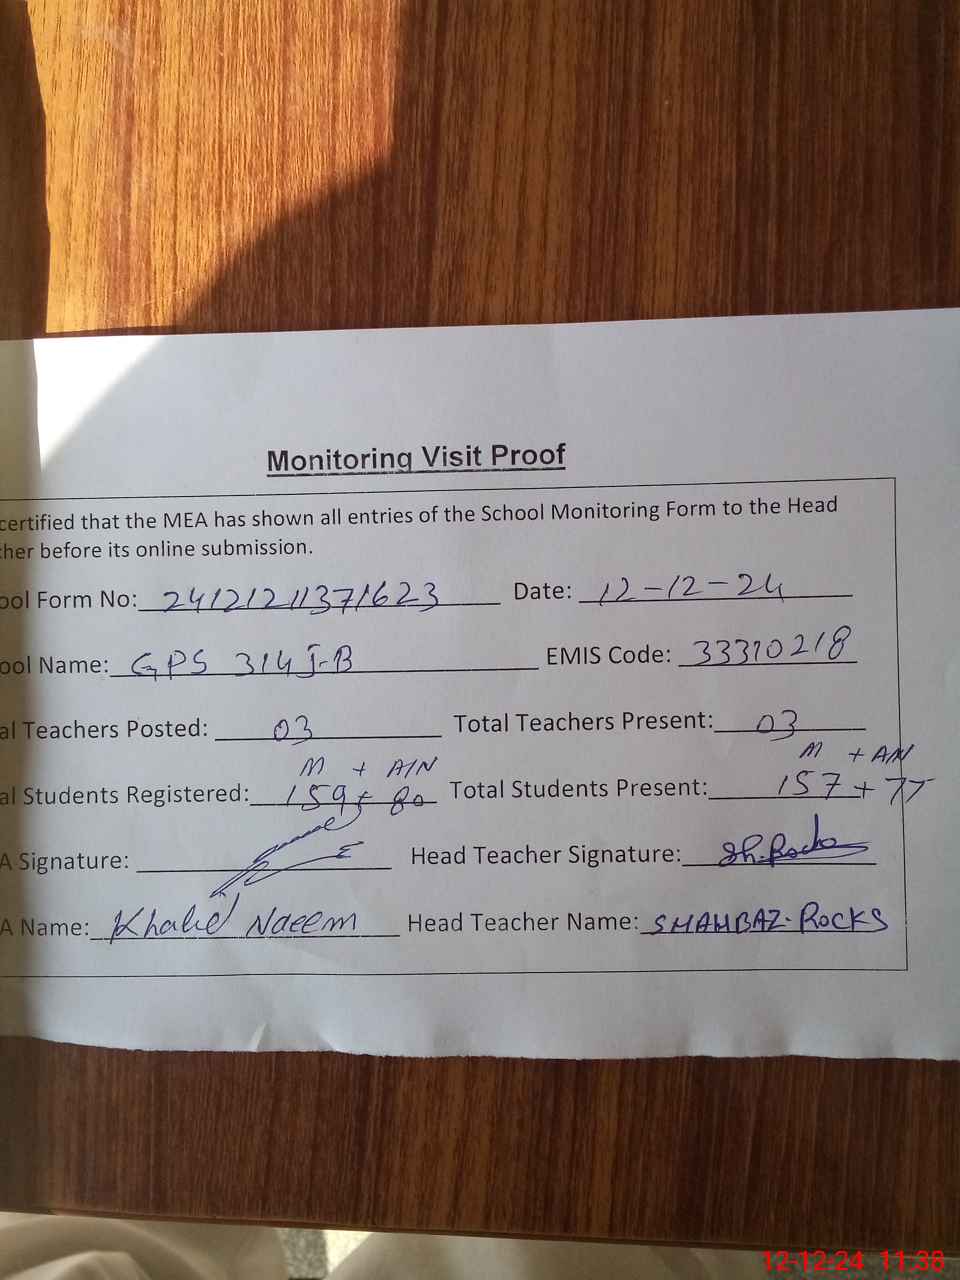 Monitoring Visit Proof
certified that the MEA has shown all entries of the School Monitoring Form to the Head
cher before its online submission.
ool Form No: 24121211371623 Date: 12-12-24
ool Name: GPS 314 J-B EMIS Code: 33310218
al Teachers Posted: 03 Total Teachers Present: 03
M + A/N M + A/N
al Students Registered: 159+ 80 Total Students Present: 157 + 77
A Signature: Head Teacher Signature: Sh.Rocks
A Name: Khalid Naeem Head Teacher Name: SHAHBAZ-ROCKS
12-12-24 11:38